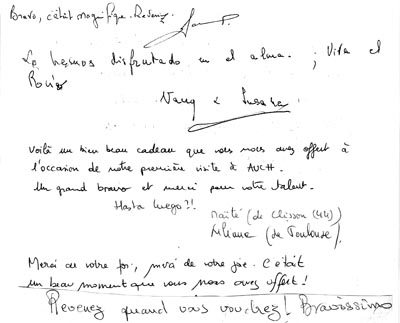 Bravo, c'était magnifique. Revenez
Lo hemos disfrutado en el alma. ; Viva el
Nany &
Voilà un bien beau cadeau que vous nous avez offert à
l'occasion de notre première visite à AUCH.
Un grand bravo et merci pour votre talent.
Hasta luego ?!
Maïté (de Clisson (44)
Liliane (de Toulouse).
Merci de votre foi, merci de votre joie. C'était
un beau moment que vous nous avez offert !
Revenez quand vous voudrez ! Bravissimo